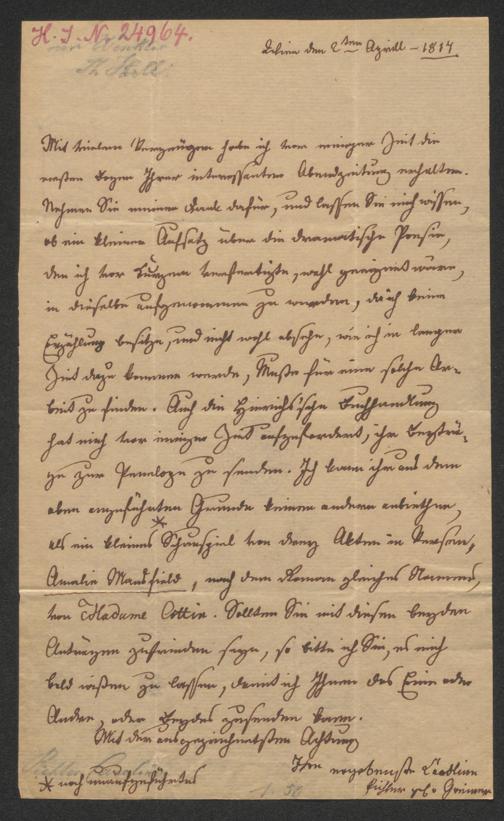 H. I. N. 24964.
Th. Hell
Wien den 2ten Aprill – 1817
Mit vielem Vergnügen habe ich vor einiger Zeit die
ersten Bogen Ihrer interessanten Abendzeitung erhalten.
Nehmen Sie meinen Dank dafür, und lassen Sie mich wissen,
ob ein kleiner Aufsatz über die dramatische Poesie,
den ich vor Kurzem verfertigte, wohl geeignet wäre,
in dieselbe aufgenommen zu werden, da ich keine
Erzählung besitze, und nicht wohl absehe, wie ich in langer
Zeit dazu kommen werde, Muße für eine solche Ar-
beit zu finden. Auch die Hinrichs'sche Buchhandlung
hat mich vor einiger Zeit aufgefordert, ihr Beyträ-
ge zur Penelope zu senden. Ich kann ihr aus dem
oben angeführten Grunde keinen andern anbiethen,
als ein kleines * Schauspiel von drey Akten in Versen,
Amalie Mansfield, nach dem Roman gleiches Namens,
von Madame Cottin. Sollten Sie mit diesen beyden
Anträgen zufrieden seyn, so bitte ich Sie, es mich
bald wißen zu lassen, damit ich Ihnen das Eine oder
Andre, oder Beydes zusenden kann.
Mit der ausgezeichnetsten Achtung
Ihre ergebenste Caroline
Pichler geb. Greiner
Pichler Caroline
* noch unaufgeführtes